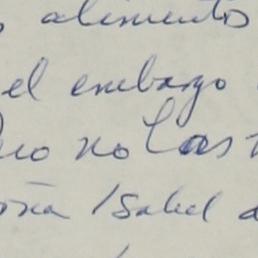 alimento
el embargo
no las
Isabel d